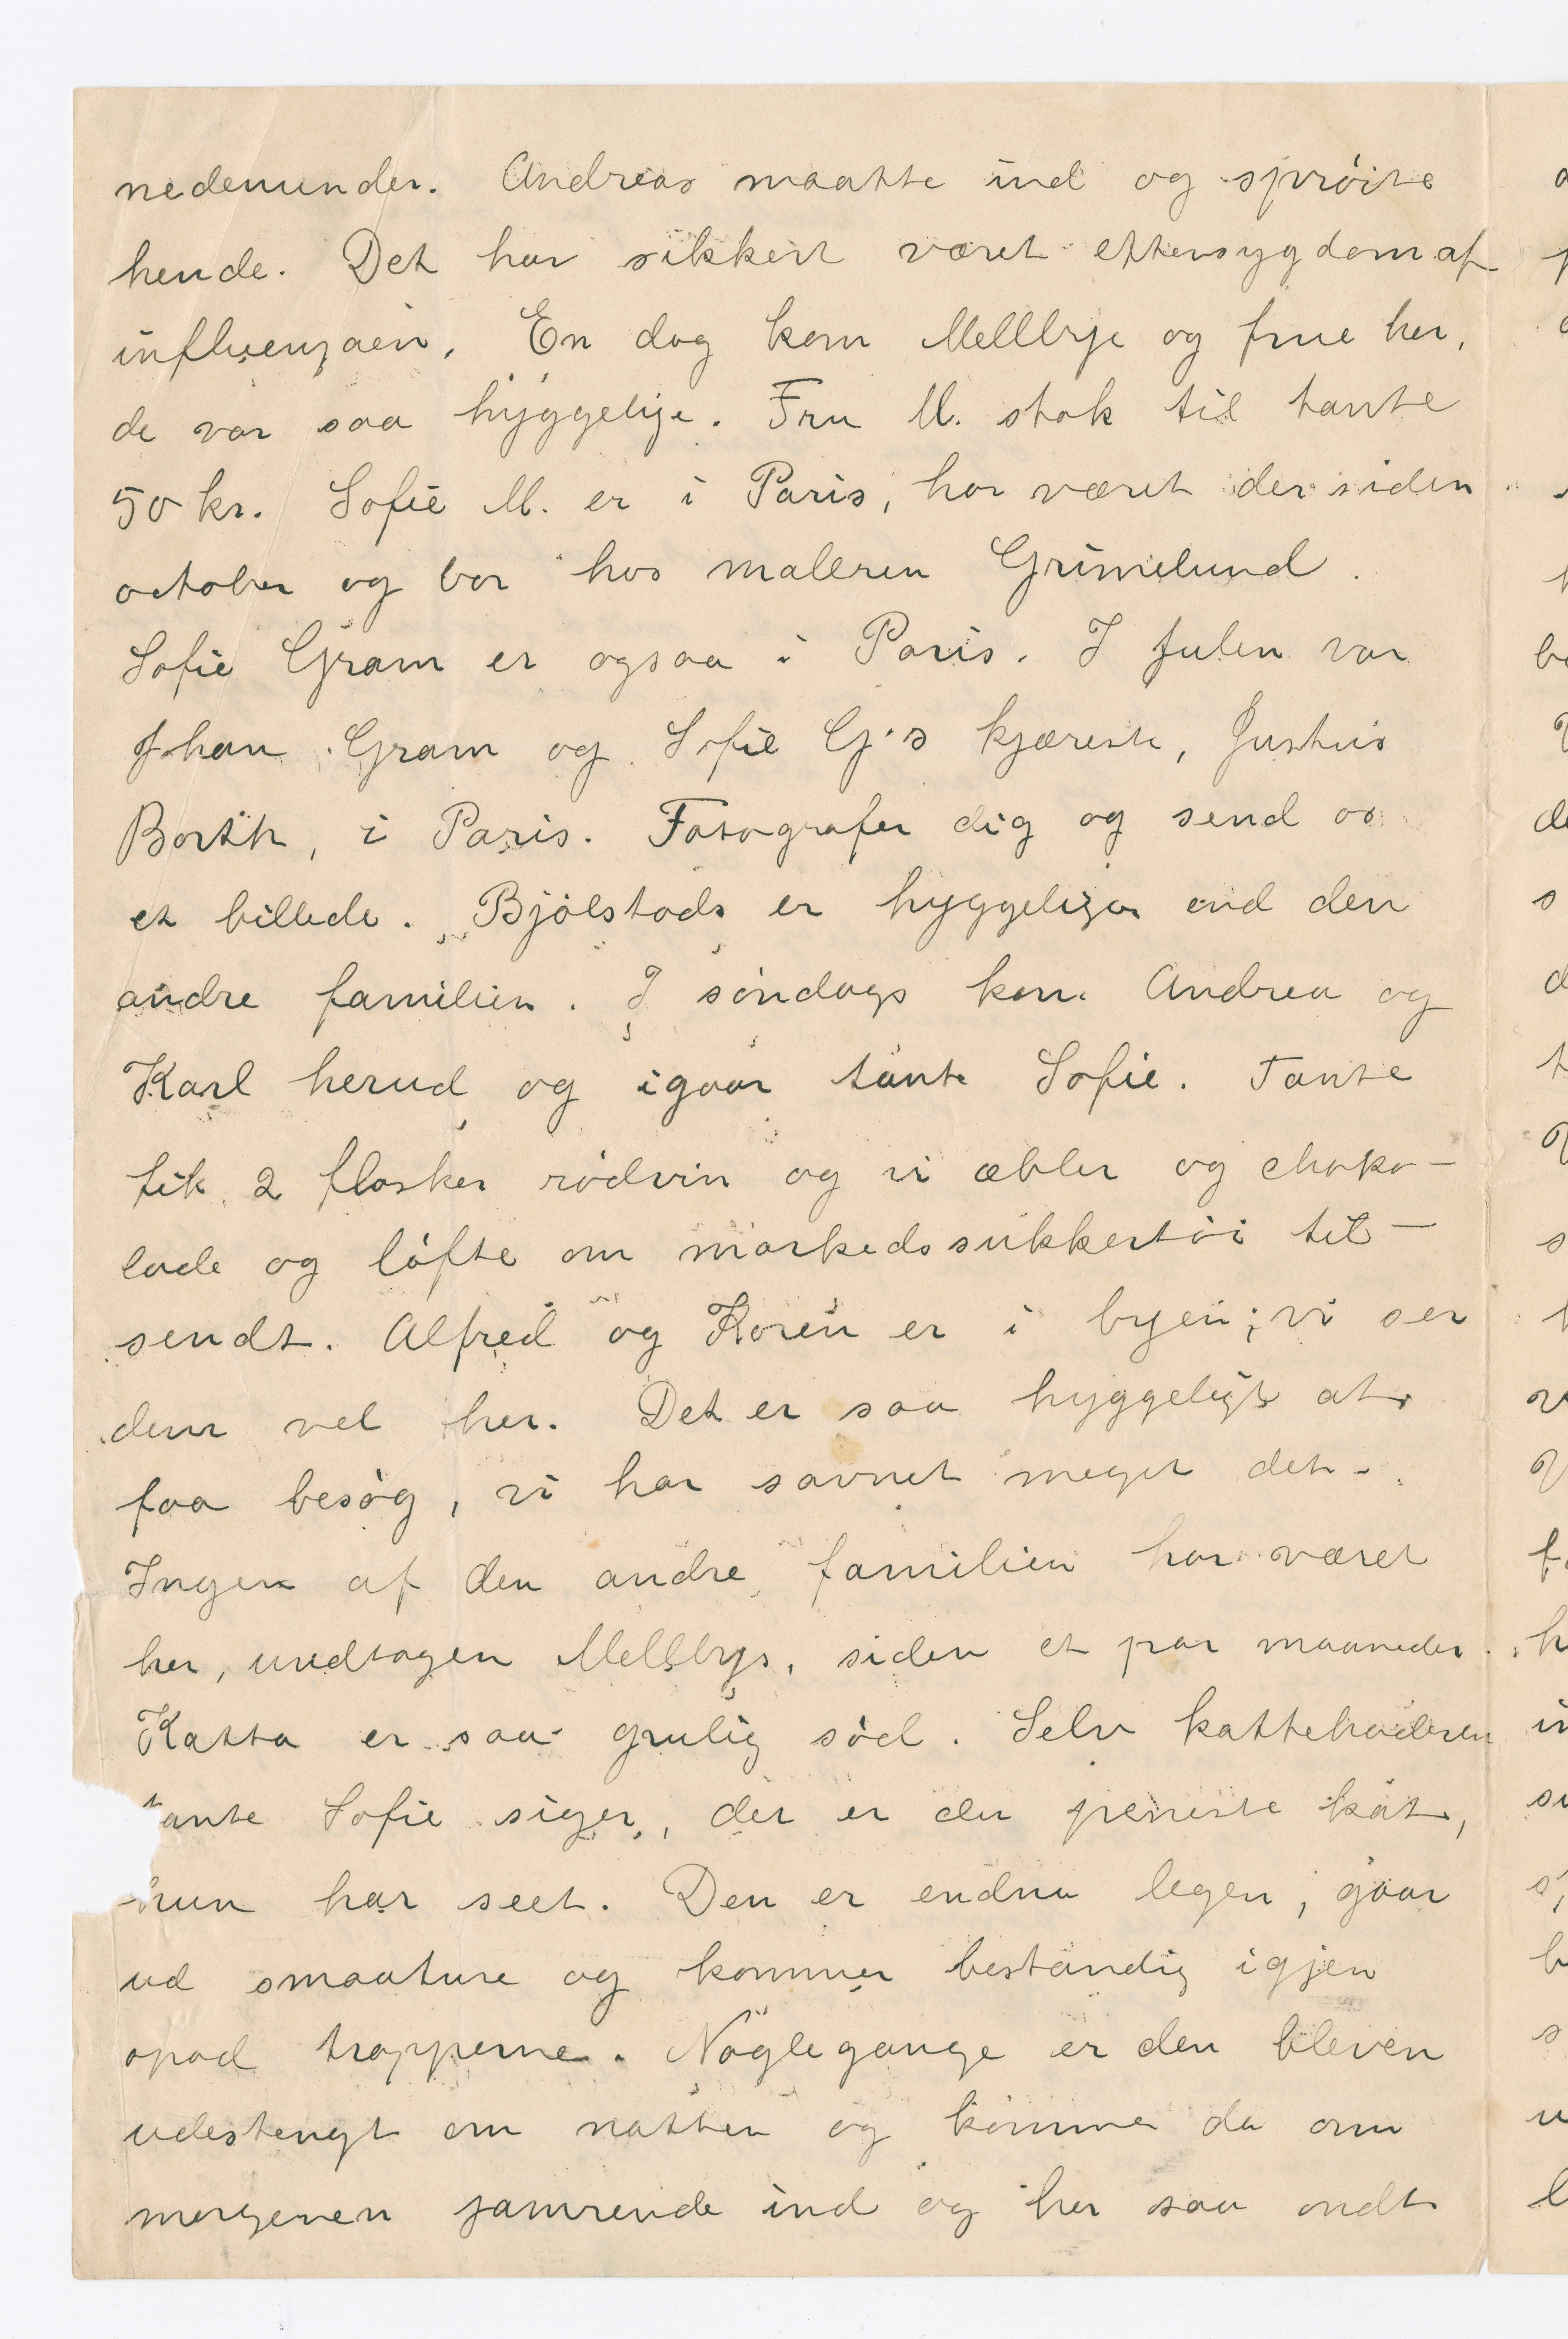 nedenunder. Andreas maatte ind og sprøite
hende. Det har sikkert været eftersygdom af
influenzaen. En dag kom Mellbye og frue her,
de var saa hyggelige. Fru M. stak til tante
50 kr. Sofie M. er i Paris, har været der siden
october og bor hos maleren Grimelund.
Sofie Gram er ogsaa i Paris. I Julen var
Jhan Gram og Sofie G's kjæreste, Justus
Barth, i Paris. Fotografer dig og send os
et billede. Bjølstads er hyggeliger end den
andre familien. I søndags kom Andrea og
Karl herud og igaar tante Sofie. Tante
fik 2 flasker rødvin og vi æbler og choko-
lade og løfte om markedssukkertøi til-
sendt. Alfred og Karen er i byen; vi ser
dem vel her. Det er saa hyggeligt at
faa besøg, vi har savnet meget det.
Ingen af den andre familien har været
her, undtagen Mellbys, siden et par maaneder.
Katta er saa grulig sød. Selv kattehaderen
tante Sofie siger, det er den peneste kat,
hun har seet. Den er endnu legen, gaar
ud smaature og kommer bestandig igjen
opad trapperne. Nogle gange er den bleven
udestengt om natten og kommer da om
morgenen jamrende ind og har saa ondt